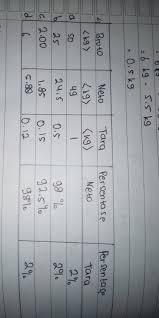 = 6 kg - 5.5 kg
= 0.5 kg
Bruto Neto Tara Persentase Persentase
(kg) (kg) (kg) Neto Tara
a 50 49 1 2%
b 25 24.5 0.5 98% 2%
c 2.00 1.85 0.15 92.5%
d 6 5.88 0.12 98% 2%